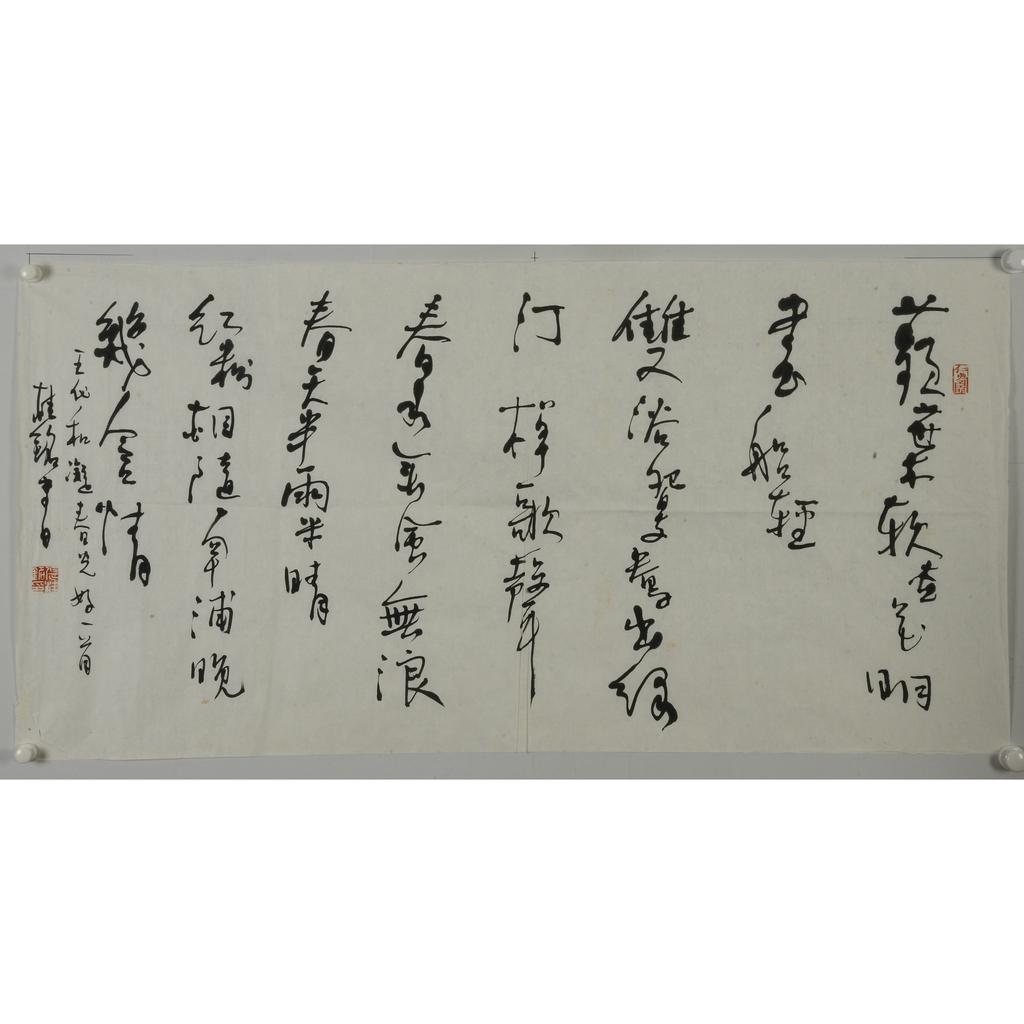 蘋葉軟杏花明
畫船輕
雙浴鴛鴦出綠
汀棹歌聲
春水無風無浪
春天半雨半晴
紅粉相隨南浦晚
幾含情
五代和凝春光好一首
桂銘書